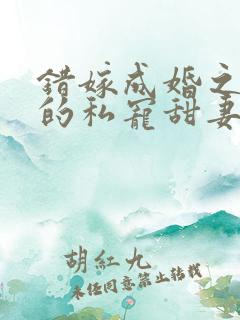 错嫁成婚之
的私宠甜妻
胡红九
未经同意禁止转载